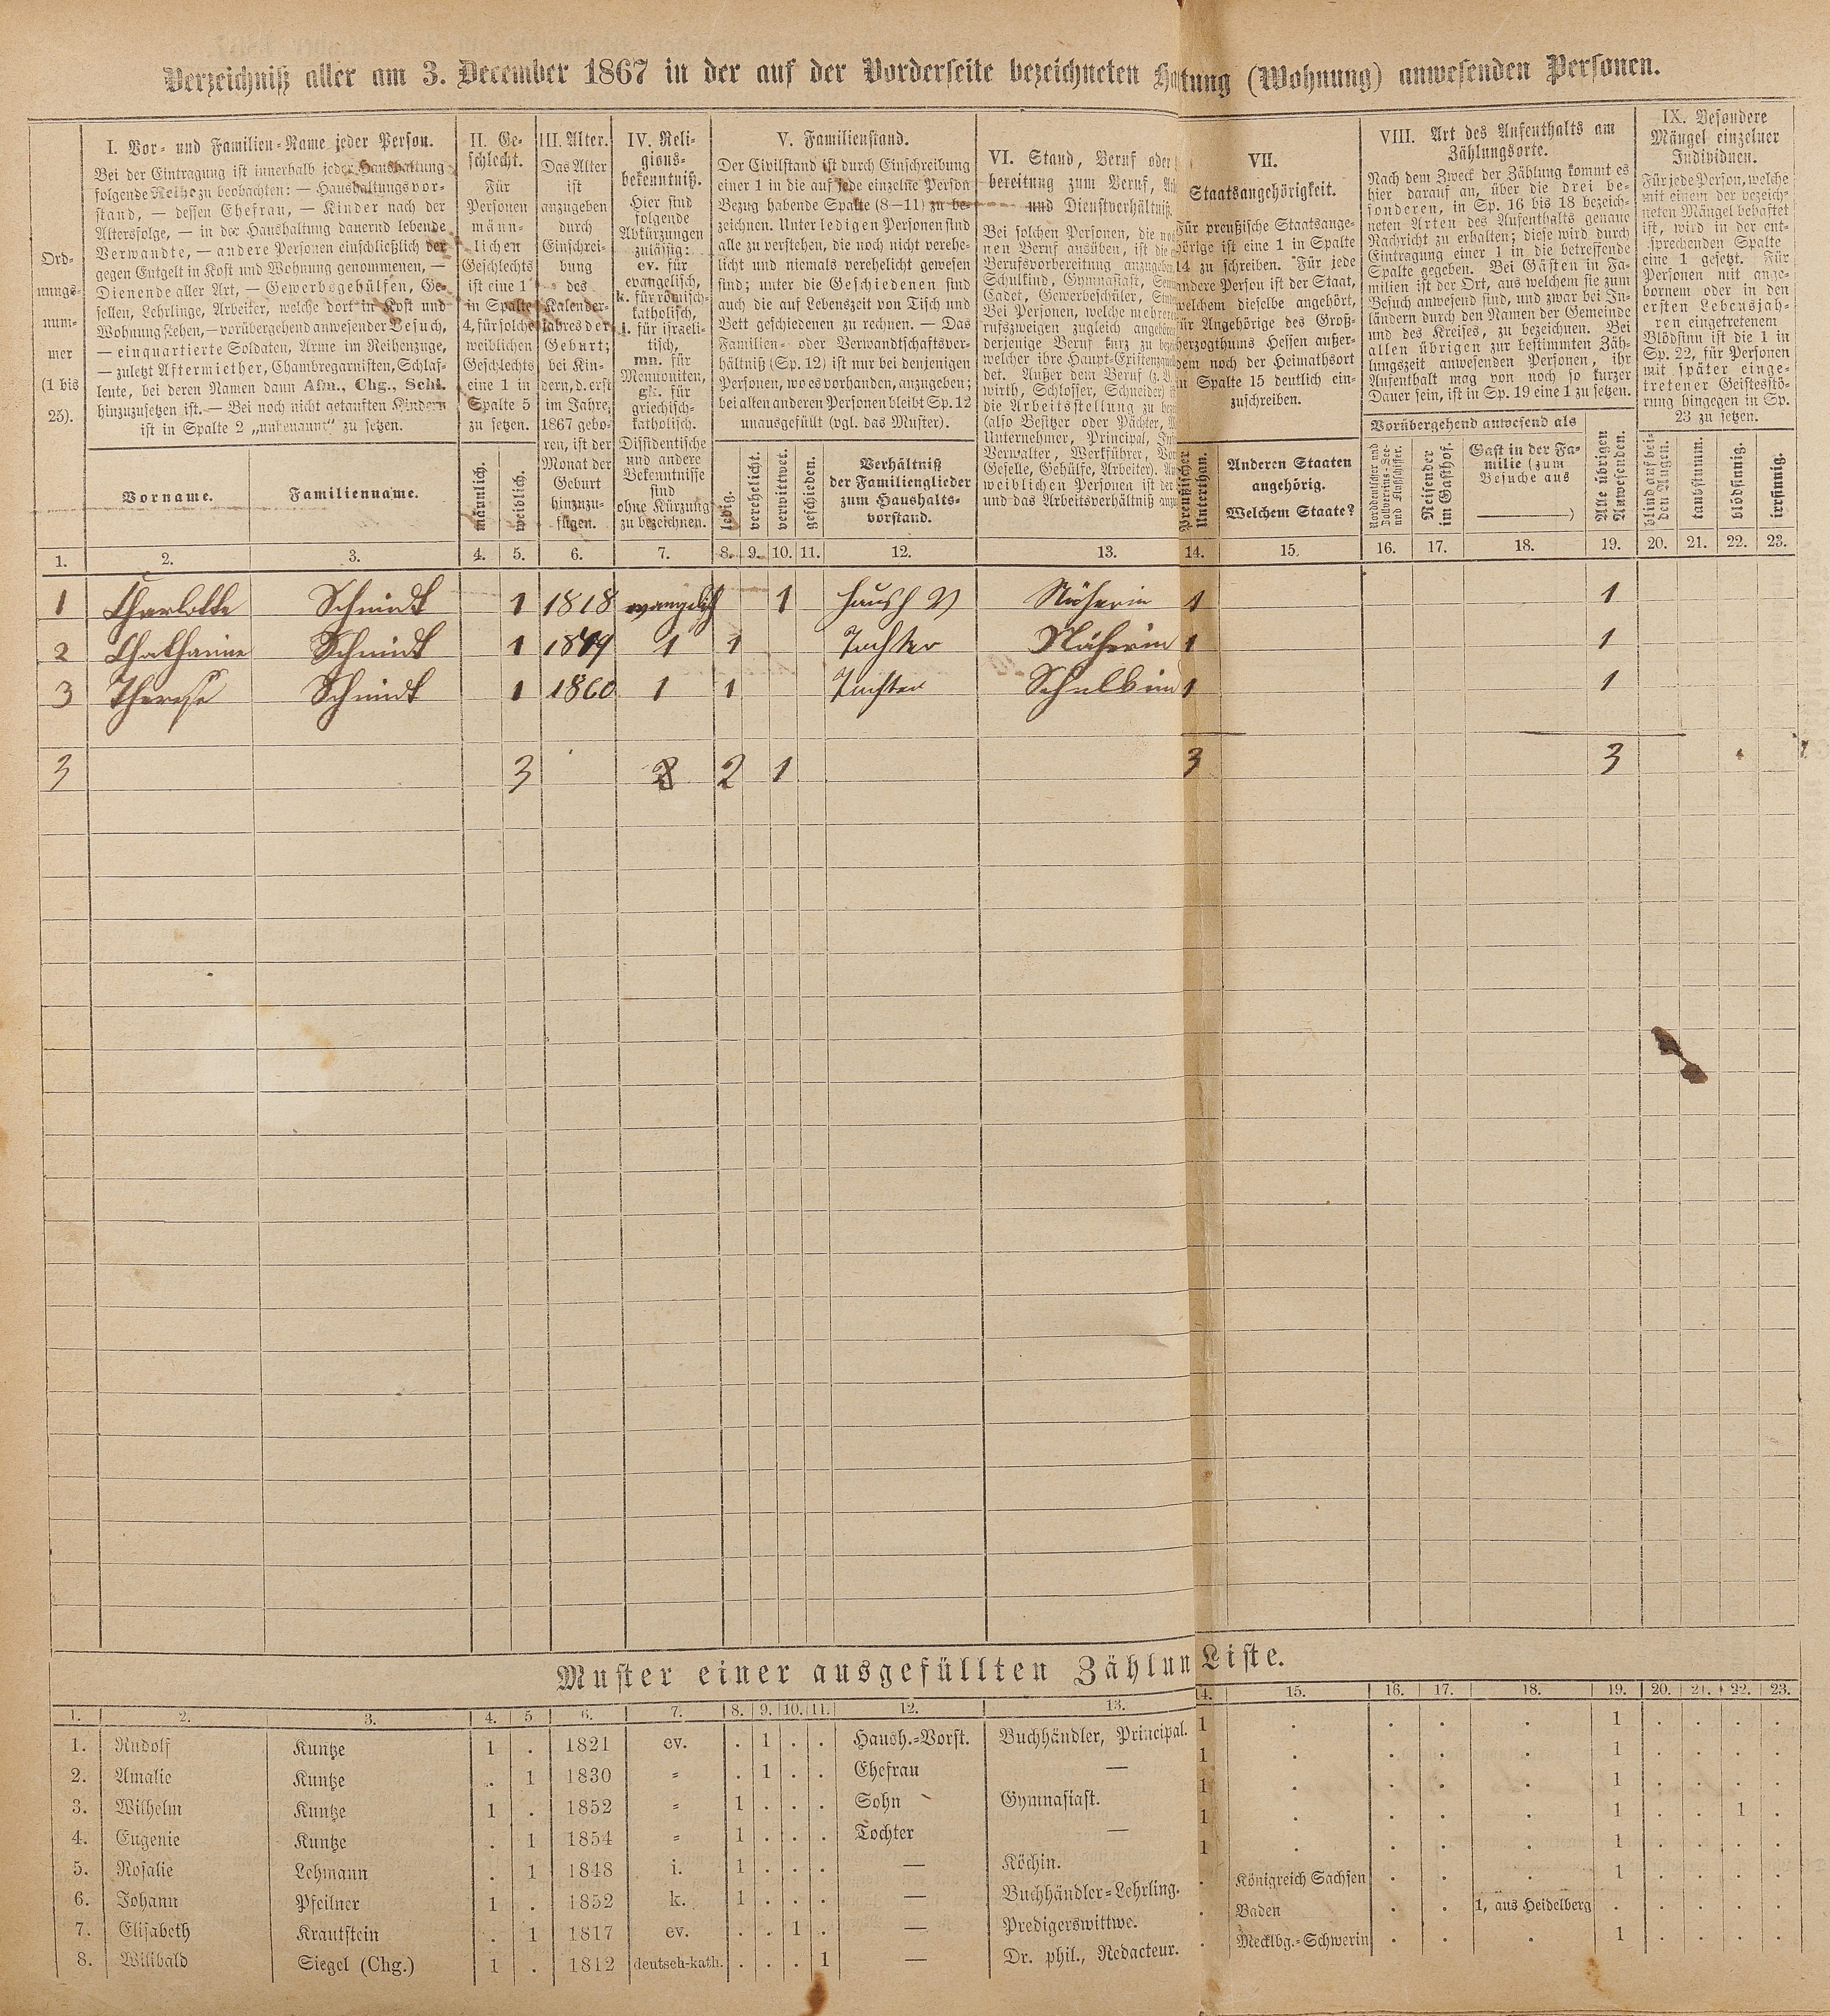 Verzeichniß aller am 3. December 1867 in der auf der Vorderseite bezeichneten Haltung (Wohnung) anwesenden Personen.
Ord-
nungs-
num-
mer
(1 bis
25).
I. Vor- und Familien-Name jeder Person.
Bei der Eintragung ist innerhalb jeder Haushaltung
folgende Reihe zu beobachten: — Haushaltungsvor-
stand, — dessen Ehefrau, — Kinder nach der
Altersfolge, — in der Haushaltung dauernd lebende
Verwandte, — andere Personen einschließlich der
gegen Entgelt in Kost und Wohnung genommenen, —
Dienende aller Art, — Gewerbsgehülfen, Ge-
sellen, Lehrlinge, Arbeiter, welche dort in Kost und
Wohnung stehen, — vorübergehend anwesender Besuch,
— einquartierte Soldaten, Arme im Reihenzuge,
— zuletzt Aftermiether, Chambregarnisten, Schlaf-
leute, bei deren Namen dann Afm., Chg., Schl.
hinzuzusetzen ist. — Bei noch nicht getauften Kindern
ist in Spalte 2 „unbenannt“ zu setzen.
Vorname.
Familienname.
II. Ge-
schlecht.
Für
Personen
männ-
lichen
Geschlechts
ist eine 1
in Spalte
4, für solche
weiblichen
Geschlechts
eine 1 in
Spalte 5
zu setzen.
männlich.
weiblich.
III. Alter.
Das Alter
ist
anzugeben
durch
Einschrei-
bung
des
Kalender-
jahres der
Geburt;
bei Kin-
dern, d. erst
im Jahre
1867 gebo-
ren, ist der
Monat der
Geburt
hinzuzu-
fügen.
IV. Reli-
gions-
bekenntniß.
Hier sind
folgende
Abkürzungen
zulässig:
ev. für
evangelisch,
k. für römisch-
katholisch,
i. für israeli-
tisch,
mn. für
Mennoniten,
gk. für
griechisch-
katholisch.
Dissidentische
und andere
Bekenntnisse
sind
ohne Kürzung
zu bezeichnen.
V. Familienstand.
Der Civilstand ist durch Einschreibung
einer 1 in die auf jede einzelne Person
Bezug habende Spalte (8—11) zu be-
zeichnen. Unter ledigen Personen sind
alle zu verstehen, die noch nicht verehe-
licht und niemals verehelicht gewesen
sind; unter die Geschiedenen sind
auch die auf Lebenszeit von Tisch und
Bett geschiedenen zu rechnen. — Das
Familien- oder Verwandtschaftsver-
hältniß (Sp. 12) ist nur bei denjenigen
Personen, wo es vorhanden, anzugeben;
bei allen anderen Personen bleibt Sp. 12
unausgefüllt (vgl. das Muster).
ledig.
verehelicht.
verwittwet.
geschieden.
Verhältniß
der Familienglieder
zum Haushalts-
vorstand.
VI. Stand, Beruf oder
bereitung zum Beruf,
und Dienstverhältniß.
Bei solchen Personen, die
nen Beruf ausüben, ist die
Berufsvorbereitung anzugeben
Schulkind, Gymnasiast,
Cadet, Gewerbeschüler,
Bei Personen, welche mehreren
rufszweigen zugleich angehören
derjenige Beruf kurz zu
welcher ihre Haupt-Existenz
det. Außer dem Beruf
wirth, Schlosser, Schneider)
die Arbeitsstellung zu
(also Besitzer oder Pächter,
Unternehmer, Principal,
Verwalter, Werkführer,
Geselle, Gehülfe, Arbeiter).
weiblichen Personen ist der
und das Arbeitsverhältniß
VII.
Staatsangehörigkeit.
Für preußische Staatsange-
hörige ist eine 1 in Spalte
14 zu schreiben. Für jede
andere Person ist der Staat,
welchem dieselbe angehört,
für Angehörige des Groß-
herzogthums Hessen außer-
dem noch der Heimathsort
in Spalte 15 deutlich ein-
zuschreiben.
Preußischer
Unterthan.
Anderen Staaten
angehörig.
Welchem Staate?
VIII. Art des Aufenthalts am
Zählungsorte.
Nach dem Zweck der Zählung kommt es
hier darauf an, über die drei be-
sonderen, in Sp. 16 bis 18 bezeich-
neten Arten des Aufenthalts genaue
Nachricht zu erhalten; diese wird durch
Eintragung einer 1 in die betreffende
Spalte gegeben. Bei Gästen in Fa-
milien ist der Ort, aus welchem sie zum
Besuch anwesend sind, und zwar bei In-
ländern durch den Namen der Gemeinde
und des Kreises, zu bezeichnen. Bei
allen übrigen zur bestimmten Zäh-
lungszeit anwesenden Personen, ihr
Aufenthalt mag von noch so kurzer
Dauer sein, ist in Sp. 19 eine 1 zu setzen.
Vorübergehend anwesend als
Norddeutscher und
Zollvereins-See-
und Flußschiffer.
Reisender
im Gasthof.
Gast in der Fa-
milie (zum
Besuche aus
)
Alle übrigen
Anwesenden.
IX. Besondere
Mängel einzelner
Individuen.
Für jede Person, welche
mit einem der bezeich-
neten Mängel behaftet
ist, wird in der ent-
sprechenden Spalte
eine 1 gesetzt. Für
Personen mit ange-
bornem oder in den
ersten Lebensjah-
ren eingetretenem
Blödsinn ist die 1 in
Sp. 22, für Personen
mit später einge-
tretener Geistesstö-
rung hingegen in Sp.
23 zu setzen.
blind auf bei-
den Augen.
taubstumm.
blödsinnig.
irrsinnig.
1. 2. 3. 4. 5. 6. 7. 8. 9. 10. 11. 12. 13. 14. 15. 16. 17. 18. 19. 20. 21. 22. 23.
1 Charlotte Schmidt 1 1818 evangelisch 1 Haush V Näherin 1 1
2 Chatharine Schmidt 1 1849 1 1 Tochter Näherin 1 1
3 Therese Schmidt 1 1860 1 1 Tochter Schulkind 1 1
3 3 2 1 3 3
Muster einer ausgefüllten Zählun Liste.
1. 2. 3. 4. 5. 6. 7. 8. 9. 10. 11. 12. 13. 14. 15. 16. 17. 18. 19. 20. 21. 22. 23.
1. Rudolf Kuntze 1 . 1821 ev. . 1 . . Haush.-Vorst. Buchhändler, Principal. 1 . . . . 1 . . . .
2. Amalie Kuntze . 1 1830 „ . 1 . . Ehefrau — 1 . . . . 1 . . . .
3. Wilhelm Kuntze 1 . 1852 „ 1 . . . Sohn Gymnasiast. 1 . . . . 1 . . . .
4. Eugenie Kuntze . 1 1854 „ 1 . . . Tochter — 1 . . . . 1 . . 1 .
5. Rosalie Lehmann . 1 1848 i. 1 . . . — Köchin. 1 . . . . 1 . . . .
6. Johann Pfeilner 1 . 1852 k. 1 . . . — Buchhändler-Lehrling. . Königreich Sachsen . . . 1 . . . .
7. Elisabeth Krautstein . 1 1817 ev. . . 1 . — Predigerswittwe. . Baden . . 1, aus Heidelberg . . . . .
8. Wilibald Siegel (Chg.) 1 . 1812 deutsch-kath. . . . 1 — Dr. phil., Redacteur. . Mecklbg.-Schwerin . . . 1 . . . .